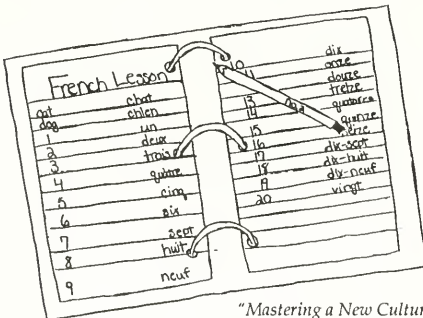 French Lesson
cat chat
dog chien
1 un
2 deux
3 trois
4 quatre
5 cinq
6 six
7 sept
8 huit
9 neuf
10 dix
11 onze
douze
13 treize
14
15
16 seize
17 dix-sept
18 dix-huit
19 dix-neuf
20 vingt
"Mastering a New Cultur